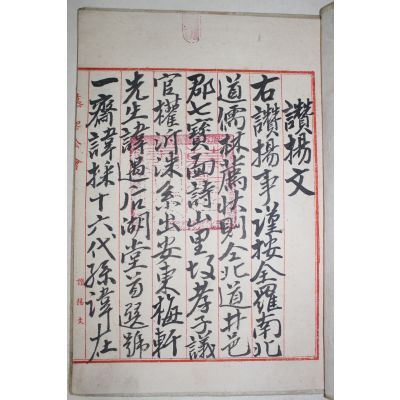 讚揚文
右讚揚事謹按全羅南北
道儒林薦狀則全北道井邑
郡七寶面詩山里故孝子議
官權泂洙系出安東梅軒
先生諱遇后湖堂首選號
一齋諱採十六代孫諱在
讚揚文